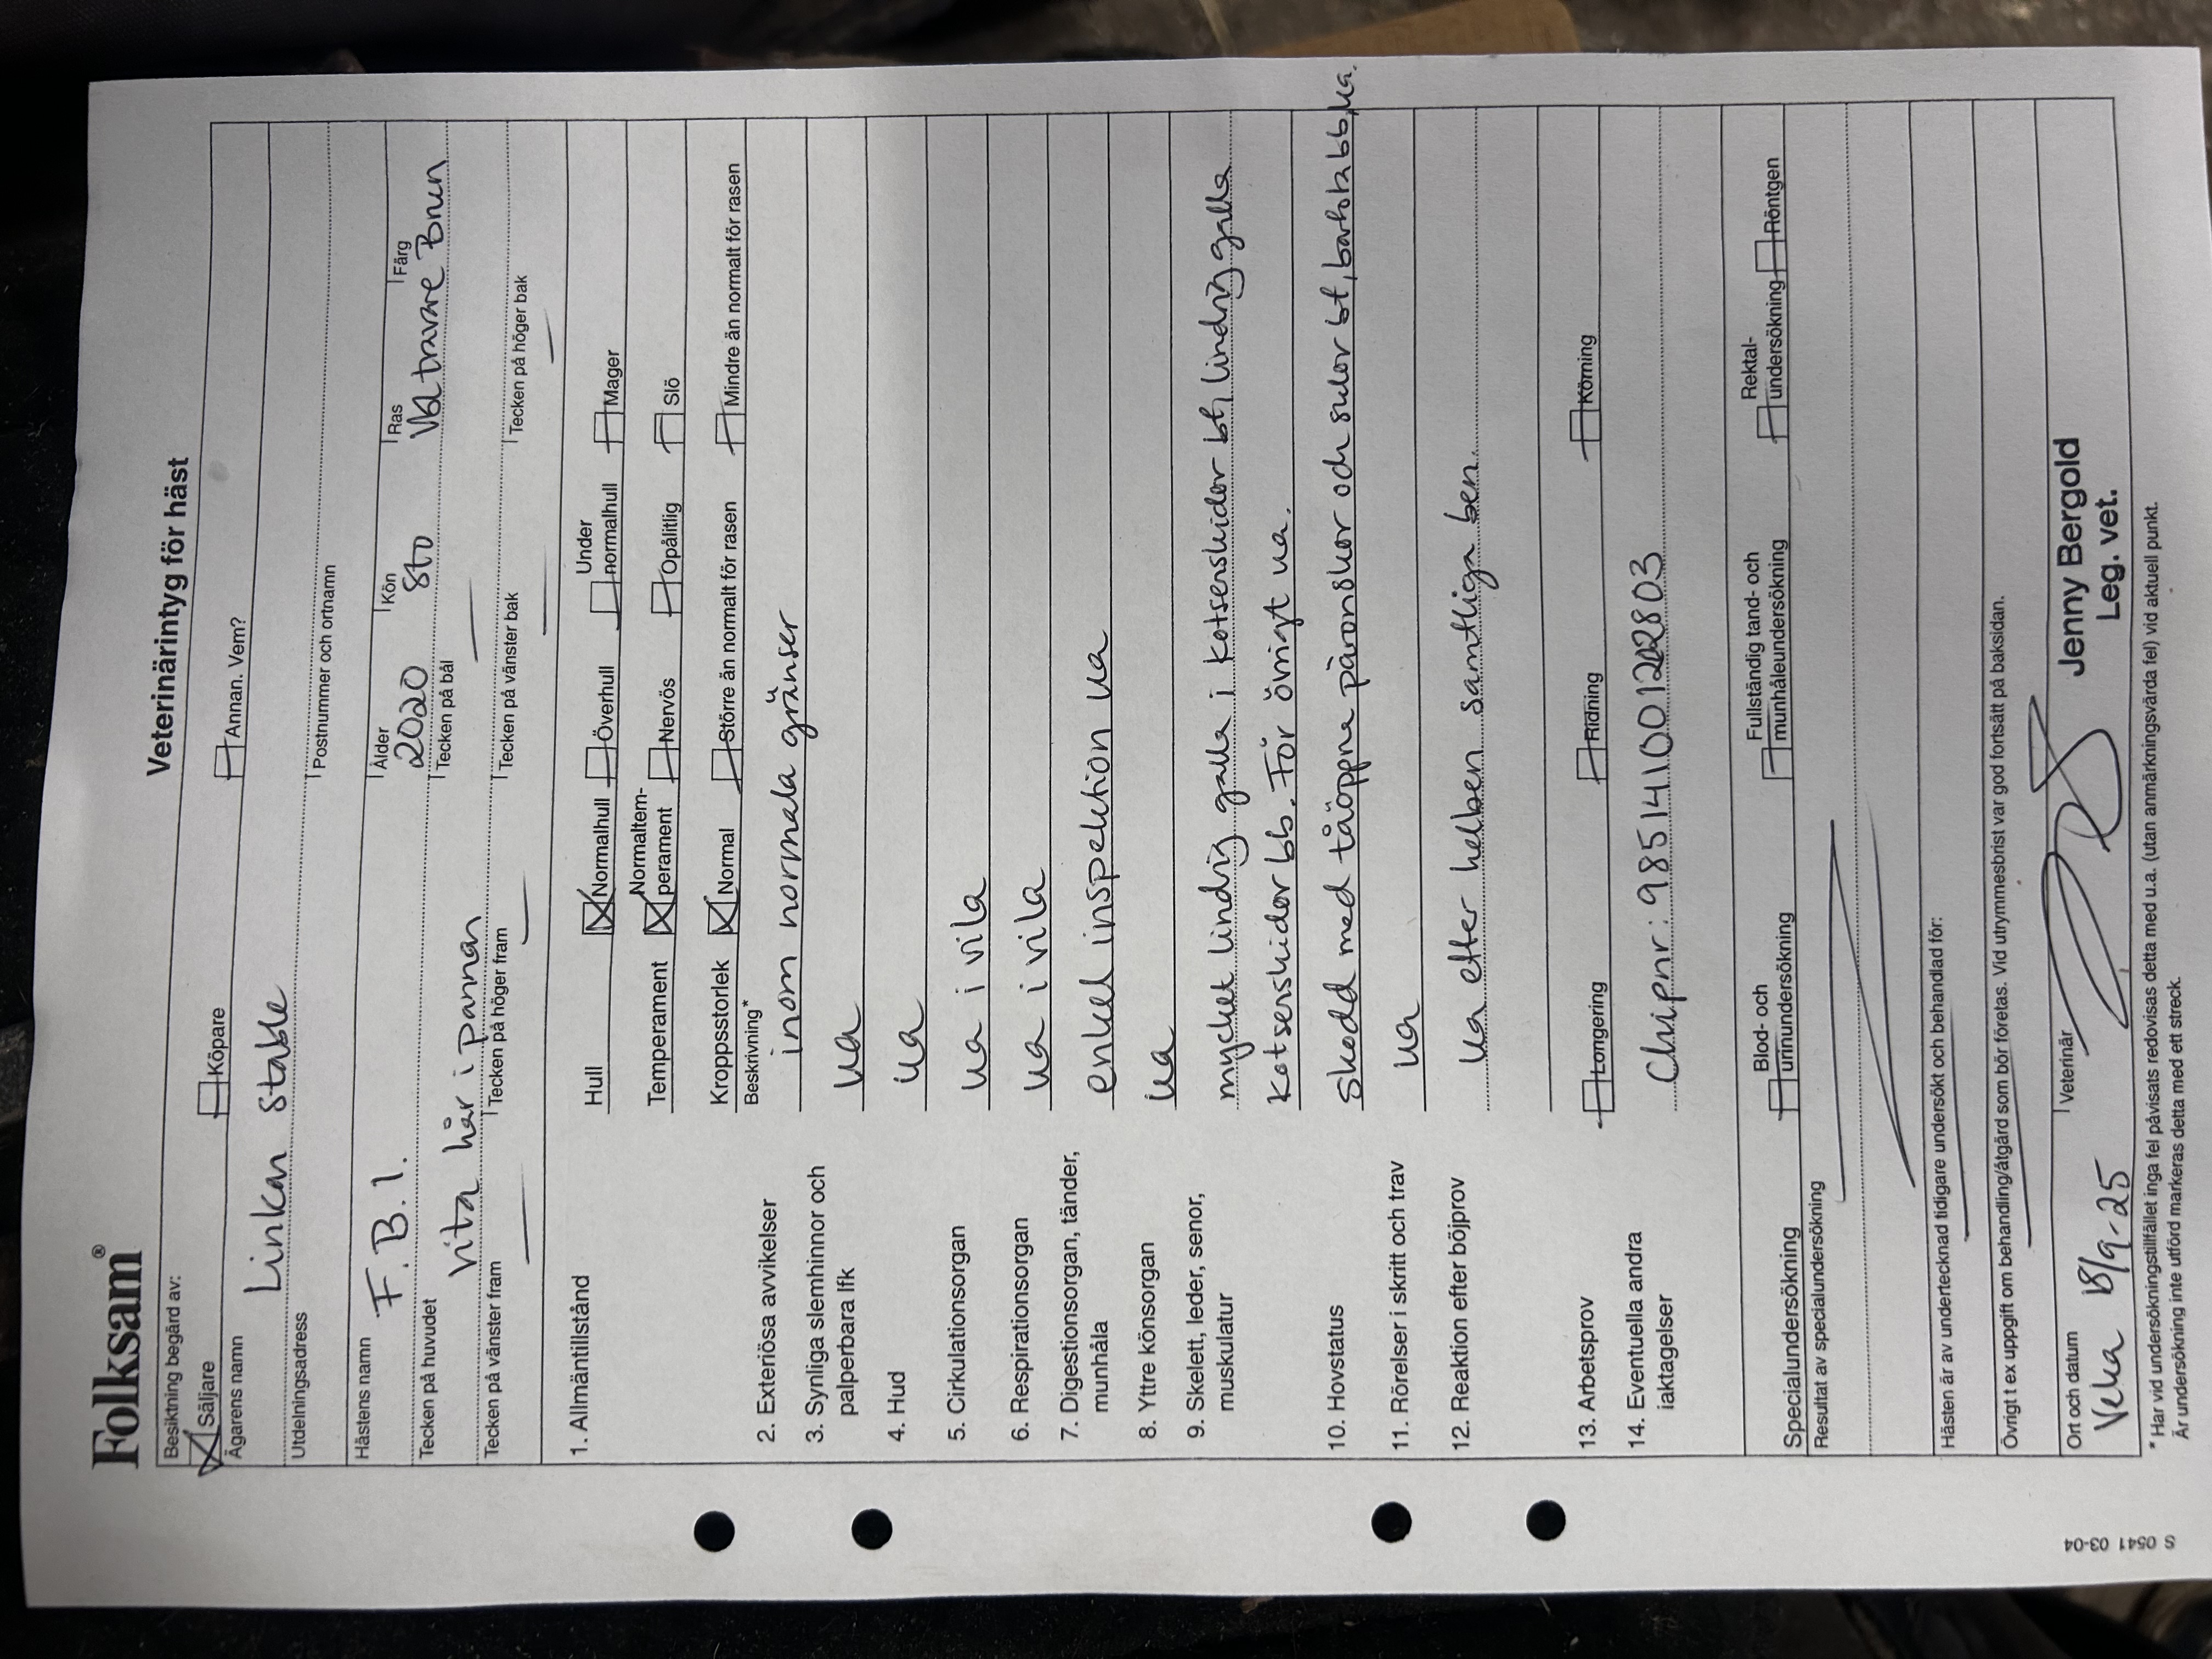 Folksam®
Veterinärintyg för häst
Besiktning begärd av:
Säljare Köpare Annan. Vem?
Ägarens namn
Linkan Stable
Utdelningsadress Postnummer och ortnamn
Hästens namn Ålder Kön Ras Färg
F.B.I. 2020 Sto Vbl travare Brun
Tecken på huvudet Tecken på bål
vita hår i pannan —
Tecken på vänster fram Tecken på höger fram Tecken på vänster bak Tecken på höger bak
— — — —
1. Allmäntillstånd Hull Normalhull Överhull Under normalhull Mager
Temperament Normaltemperament Nervös Opålitlig Slö
Kroppsstorlek Normal Större än normalt för rasen Mindre än normalt för rasen
Beskrivning*
2. Exteriösa avvikelser inom normala gränser
3. Synliga slemhinnor och
palperbara lfk ua
4. Hud ua
5. Cirkulationsorgan ua i vila
6. Respirationsorgan ua i vila
7. Digestionsorgan, tänder,
munhåla enkel inspektion ua
8. Yttre könsorgan ua
9. Skelett, leder, senor,
muskulatur mycket lindrig galla i kotsenskidor bf, lindrig galla
kotsenskidor bb. För övrigt ua.
10. Hovstatus Skodd med tåöppna päronskor och sulor bf, barfota bb, ua.
11. Rörelser i skritt och trav ua
12. Reaktion efter böjprov ua efter helben samtliga ben.
13. Arbetsprov Longering Ridning Körning
14. Eventuella andra
iaktagelser Chipnr: 985141001228803
Specialundersökning Blod- och urinundersökning Fullständig tand- och munhåleundersökning Rektal- undersökning Röntgen
Resultat av specialundersökning
Hästen är av undertecknad tidigare undersökt och behandlad för:
Övrigt t ex uppgift om behandling/åtgärd som bör företas. Vid utrymmesbrist var god fortsätt på baksidan.
Ort och datum Veterinär
Veka 18/9-25 Jenny Bergold
Leg. vet.
* Har vid undersökningstillfället inga fel påvisats redovisas detta med u.a. (utan anmärkningsvärda fel) vid aktuell punkt.
Är undersökning inte utförd markeras detta med ett streck.
S 0541 03-04